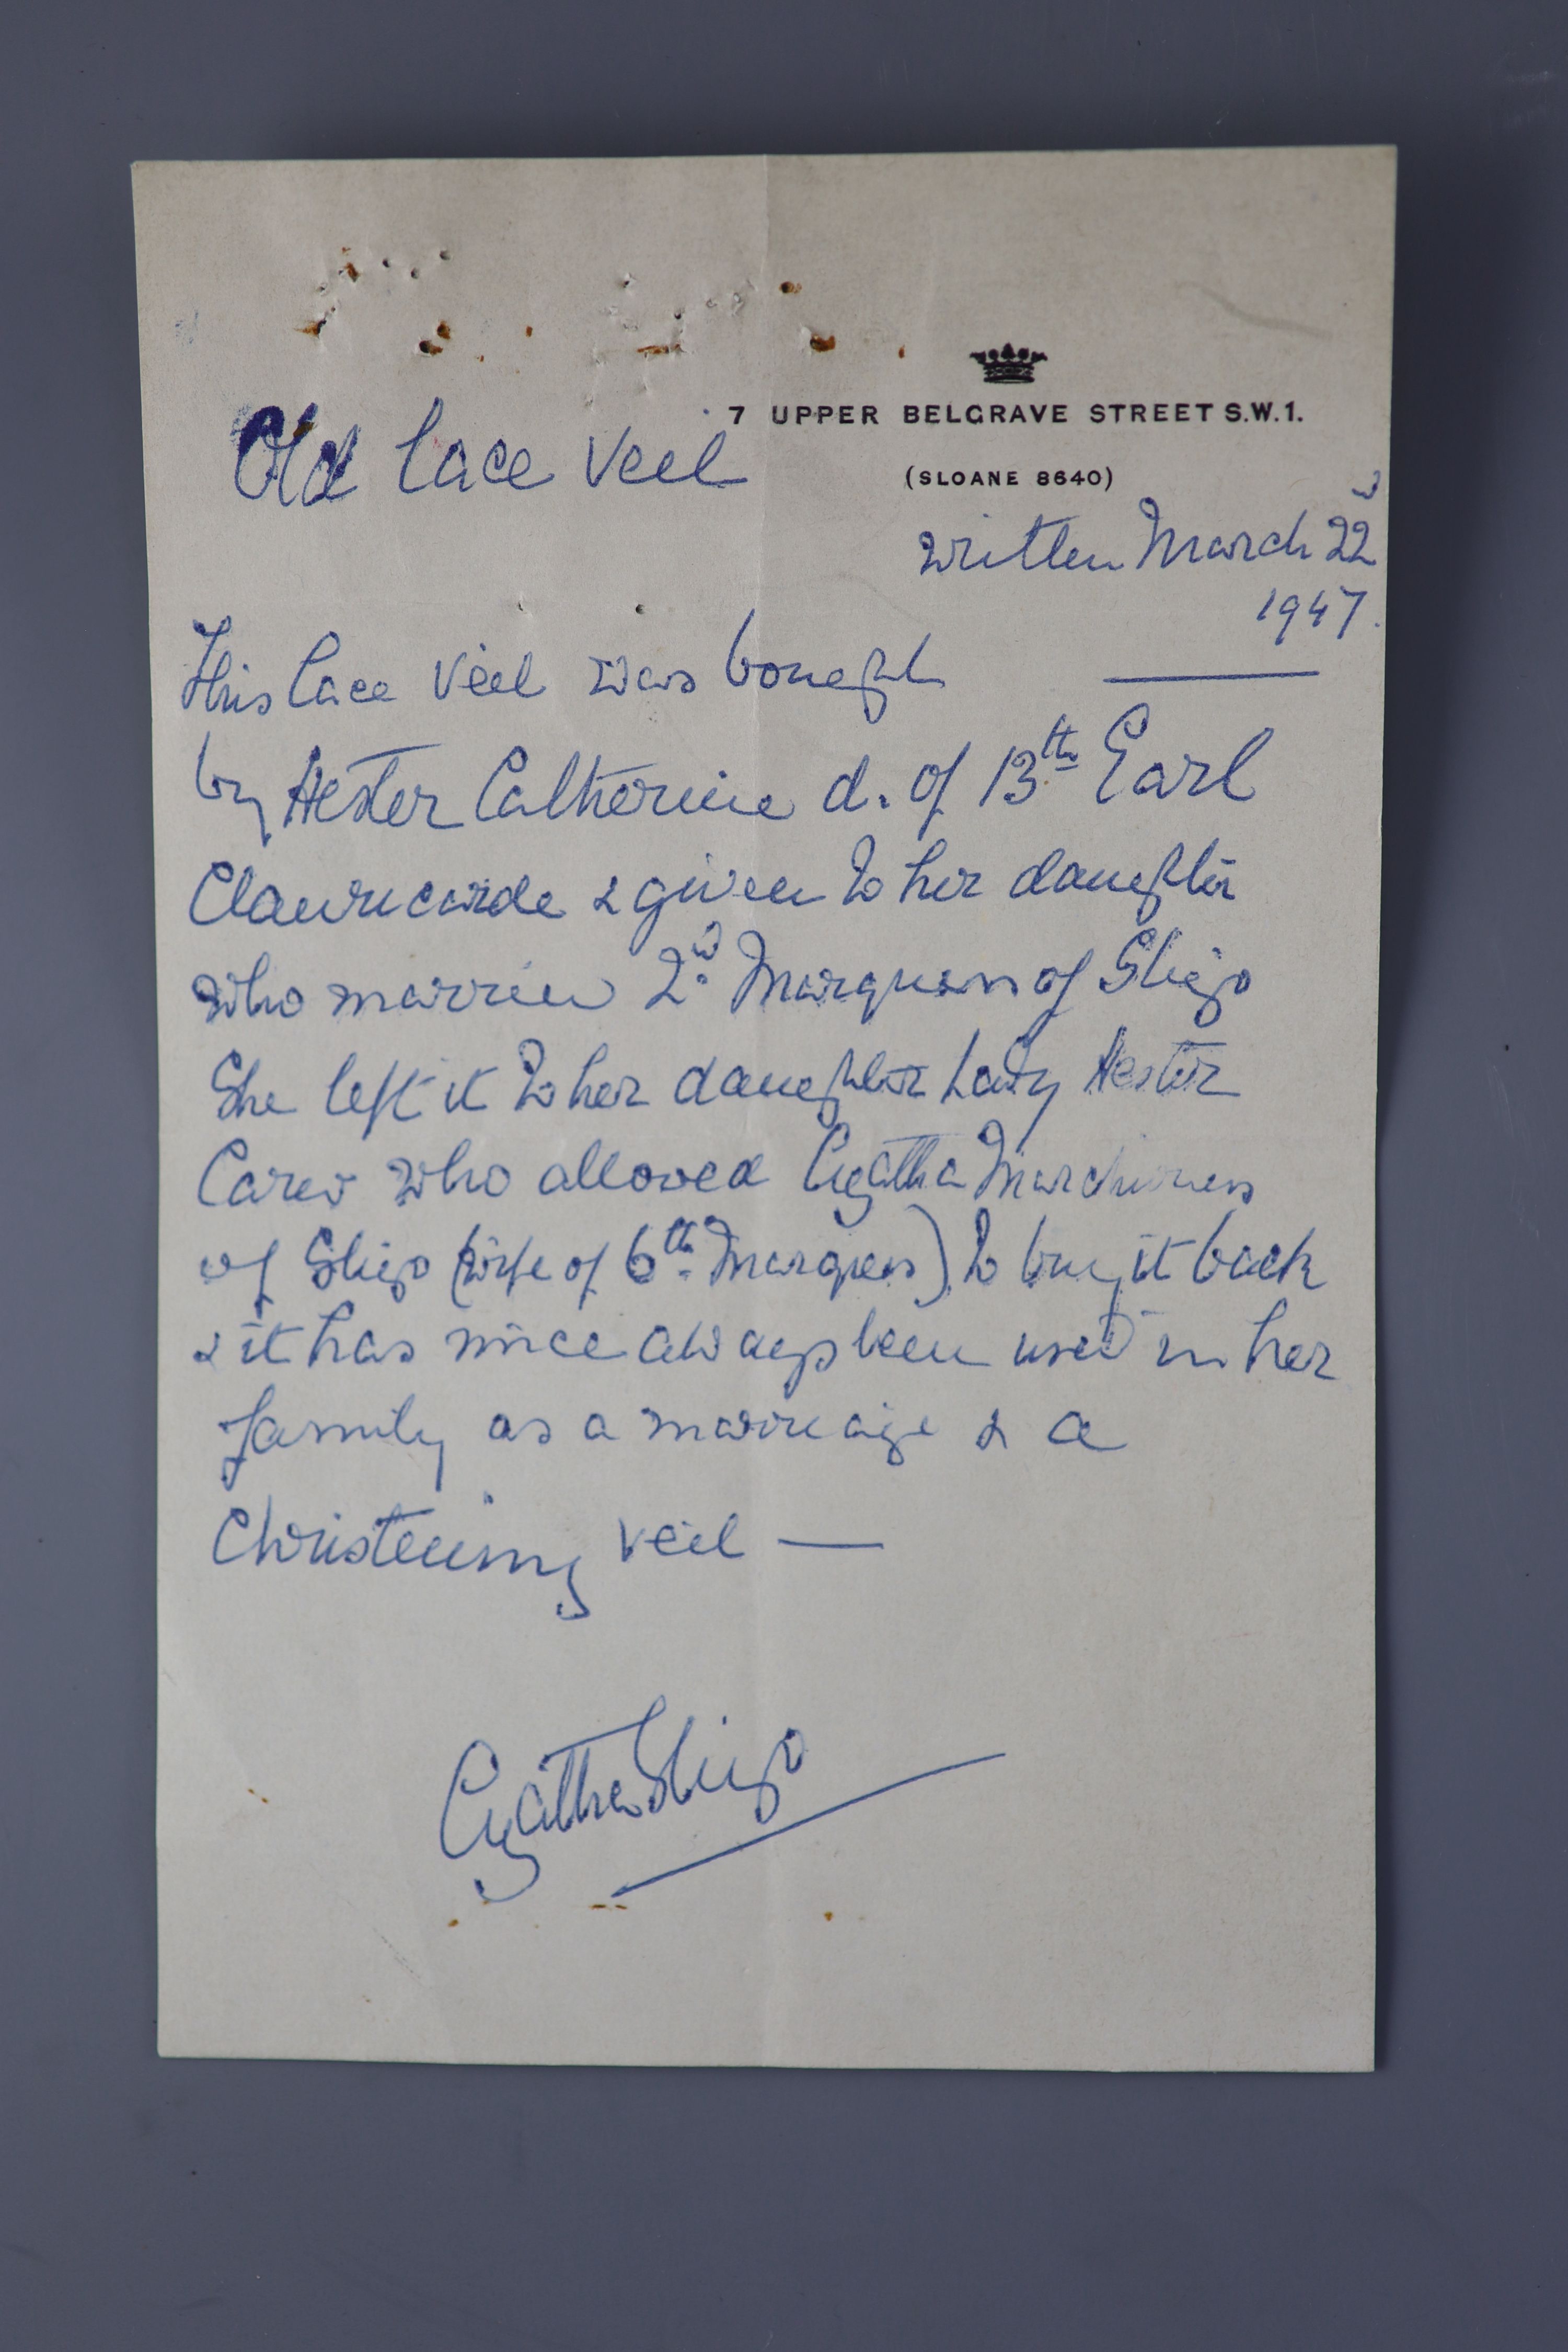 7 UPPER BELGRAVE STREET S.W.1.
Old lace veil
(SLOANE 8640)
written March 22d
1947.
This lace veil was bought
by Hester Catherine d. of 13th Earl
Clanricarde & given to her daughter
who married 2d. Marquess of Sligo
She left it to her daughter Lady Hester
Carew who allowed Agatha Marchioness
of Sligo (wife of 6th. Marquess) to buy it back
& it has since always been used in her
family as a marriage & a
Christening veil —
Agatha Sligo